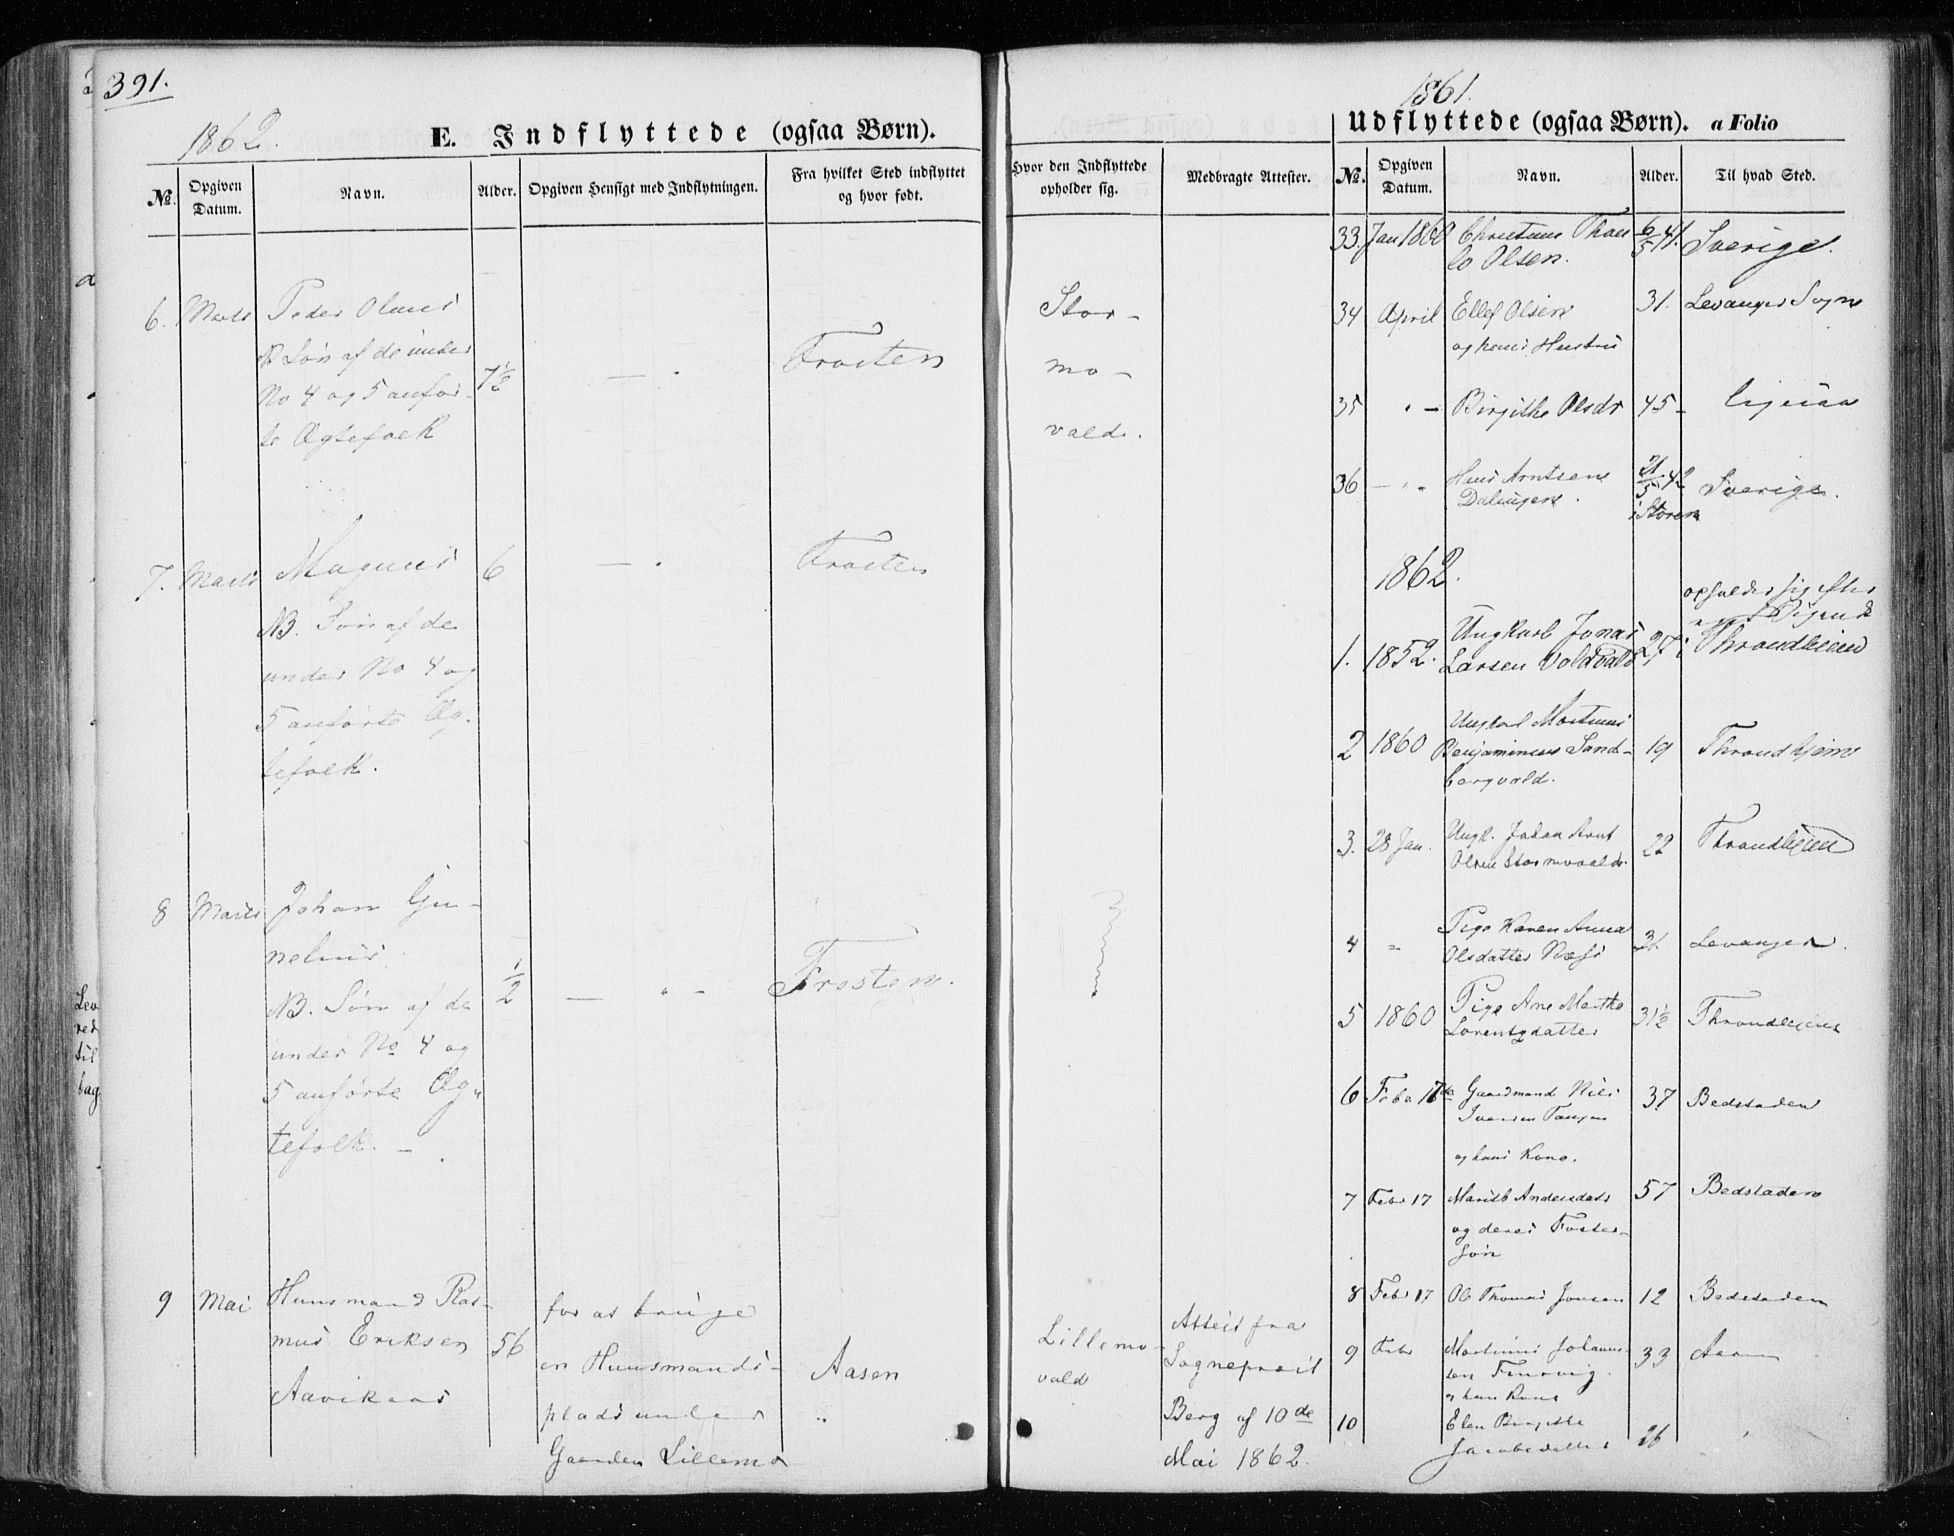 391.
1862.
E. Indflyttede (ogsaa Børn).
No. Opgiven Datum. Navn. Alder. Opgiven Hensigt med Indflytningen. Fra hvilket Sted indflyttet og hvor født.
6. Marts Peder Olaus
B Søn af de under
No 4 og 5 anfør-
te Ægtefolk
7 1/2 — " Frosten
7. Marts Magnus 6 — " Frosten
NB. Søn af de
under No 4 og
5 anførte Æg-
tefolk.
8 Marts Johan Gu-
nelius
NB. Søn af de
under No 4 og
5 anførte Æg-
tefolk. —
1/2 — " — Frosten.
9 Mai Huusmand Ras-
mus Eriksen
Aavikaas
56
for at bruge
en Huusmands-
plads under
Gaarden Lillemo
Aasen
"
Hvor den Indflyttede opholder sig. Medbragte Attester.
Stor-
mo-
vald.
Lillemo-
vald
Attest fra
Sognepræst
Berg af 10de
Mai 1862.
1861.
Udflyttede (ogsaa Børn). a Folio
No. Opgiven Datum. Navn. Alder. Til hvad Sted.
33. Jan 1860 Olsen. 6/5 41. Sverige.
34 April Ellef Olsen 31. Levanger Sogn
og hans Hustru
35 " — Birgithe Olsdr 45 - ligesaa
36 — " - Hans Arntsen 21/5 42 Sverige.
i Storen
1862.
opholder sig efter
1. 1852. Ungkarl Jonas
Larsen Voldvald 27 i Throndhjem
2 1860 Ungkarl Martinus
Benjaminsen Sand-
bergvald. 19 Throndhjem
3. 28 Jan. Ungk. Johan Arnt
Olsen Stormovald. 22 Throndhjem
4 " Pige Karen Anna
Olsdatter Næss 31 Levanger.
5 1860 Pige Ane Martha
Lorentzdatter 31 1/2 Throndhjem
6 Febr 17de Gaardmand Nils
Iversen Tangen 37 Bedstaden
og hans Kone.
7 Febr 17 Marith Andersdatr 57 Bedstaden
og deres Foster-
søn
8 Febr 17 Ole Thomas Jonsen 12 Bedstaden
9 Febr Martinus Johann-
sen Finsvig. 33 Aasen
og hans Kone
10 Elen Birgitte
Jacobsdatter 26
Lev
red
til
bag